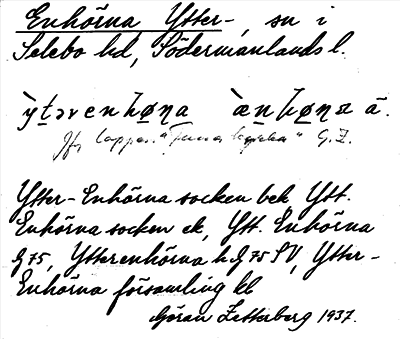 Enhörna Ytter-, sn i
Selebo hd, Södermanlands l.
`ytərenhøṇa `ænhøṇa ā.
Jfr lappen "Tuna kyrka" G.Z.
Ytter-Enhörna socken bek, Ytt.
Enhörna socken ek, Ytt. Enhörna
G75, Ytterenhörna h G75 SV, Ytter-
Enhörna församling kb
Göran Zetterberg 1937.